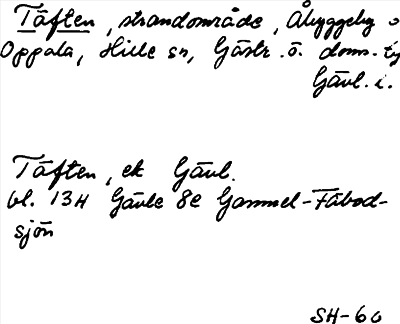 Täften, strandområde, Åbyggeby o
Oppala, Hille sn, Gästr. ö. doms.
Gävl. l.
Täften, ek Gävl.
bl. 13H Gävle 8e Gammel-Fäbod-
sjön
SH-60